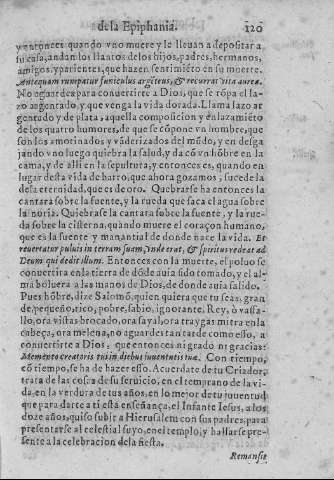 de la Epiphania. 120
y entonces quando vno muere y le lleuan a depositar a
su casa, andan los llantos de los hijos, padres, hermanos,
amigos, y parientes, que hazen sentimiẽto en su muerte.
Antequam rumpatur funiculus argẽteus, & recurrat vita aurea.
No aguardes para conuertirte a Dios, que se rõpa el la-
zo argentado, y que venga la vida dorada. Llama lazo ar
gentado y de plata, aquella composicion y enlazamiẽto
de los quatro humores, de que se cõpone vn hombre, que
son los amotinados y vãderizados del mũdo, y en desga
jando vno luego quiebra la salud, y da cõ vn hõbre en la
cama, y de alli en la sepultura, y entonces es, quando en
lugar desta vida de barro, que ahora gozamos, sucede la
de la eternidad, que es de oro. Quebrarse ha entonces la
cantara sobre la fuente, y la rueda que saca el agua sobre
la noria. Quiebrase la cantara sobre la fuente, y la rue-
da sobre la cisterna, quando muere el coraçon humano,
que es la fuente y manantial de donde nace la vida. Et
reuertatur puluis in terram suam, vnde erat, & spiritus redeat ad
Deum qui dedit illum. Entonces con la muerte, el poluo se
conuertira en la tierra de dõde auia sido tomado, y el al-
ma boluera a las manos de Dios, de donde auia salido.
Pues hõbre, dize Salomõ, quien quiera que tu seas, gran
de, pequeño, rico, pobre, sabio, ignorante, Rey, ò vassa-
llo, ora vistas brocado, ora sayal, ora traygas mitra en la
cabeça, ora melena, no aguardes tan tarde como esso, a
conuertirte a Dios; que entonces ni grado ni gracias:
Memento creatoris tui in diebus iuuentutis tuæ. Con tiempo,
cõ tiempo, se ha de hazer esso. Acuerdate de tu Criador,
trata de las cosas de su seruicio, en el temprano de la vi-
da, en la verdura de tus años, en lo mejor de tu juuentud
que para darte a ti esta enseñança, el Infante Iesus, a los
doze años, quiso subir a Hierusalem con sus padres, para
presentarse al celestial suyo, en el templo, y hallarse pre-
sente a la celebracion de la fiesta.
Remanse